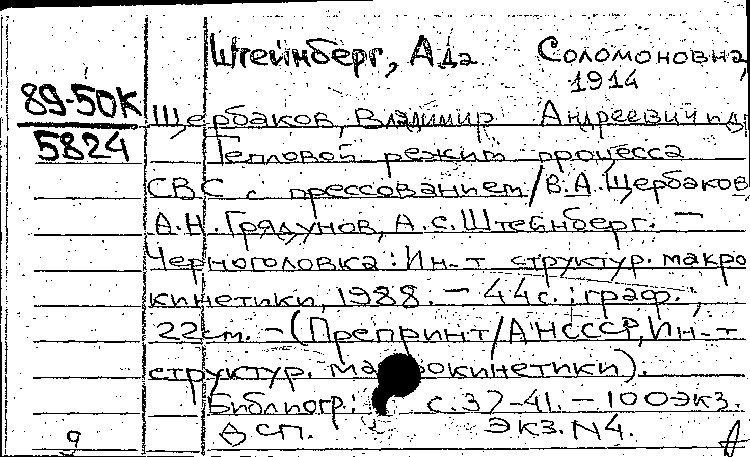 Штейнберг, Ада Соломоновна,
1914
89-50К
5824
Щербаков, Владимир Андреевич и др.
Тепловой режим процесса
СВС с прессованием/В.А.Щербаков
А.Н.Грядунов, А.С.Штейнберг. —
Черноголовка: Ин-т структур. макро
кинетики, 1988. — 44с.: граф.;
22см. — (Препринт/АНСССР, Ин-т
структур. макрокинетики).
Библиогр.: с.37-41. — 100экз.
В сп. экз. N4.
9